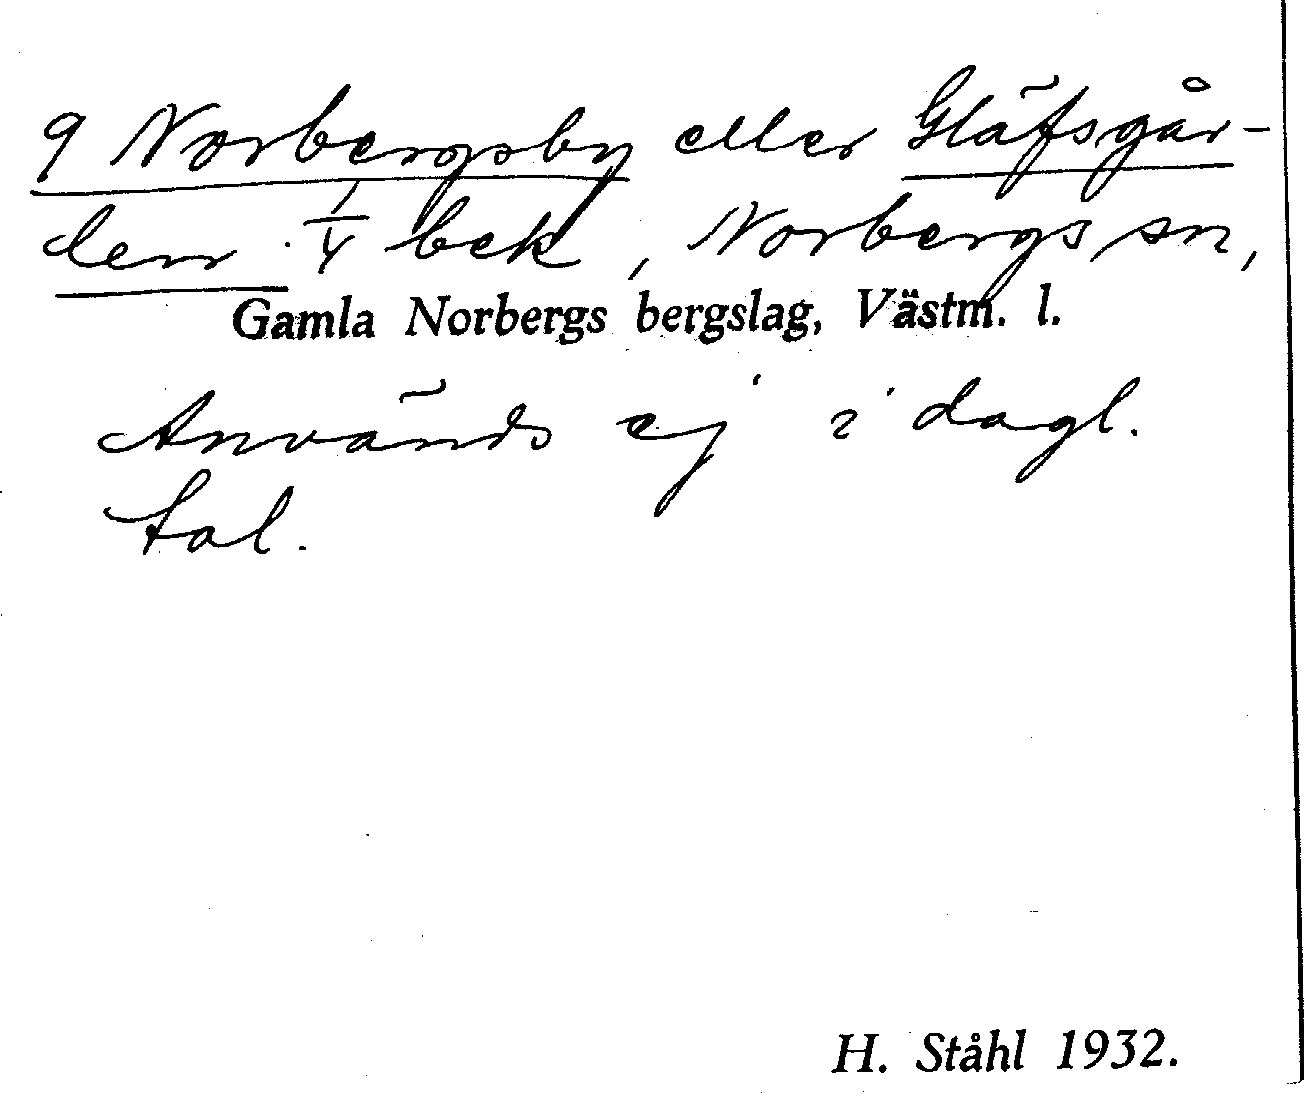 9 Norbergsby eller Gläfsgår-
den. 1/4 bek, Norbergs sn,
Gamla Norbergs bergslag, Västm. l.
Används ej i dagl.
tal.
H. Ståhl 1932.